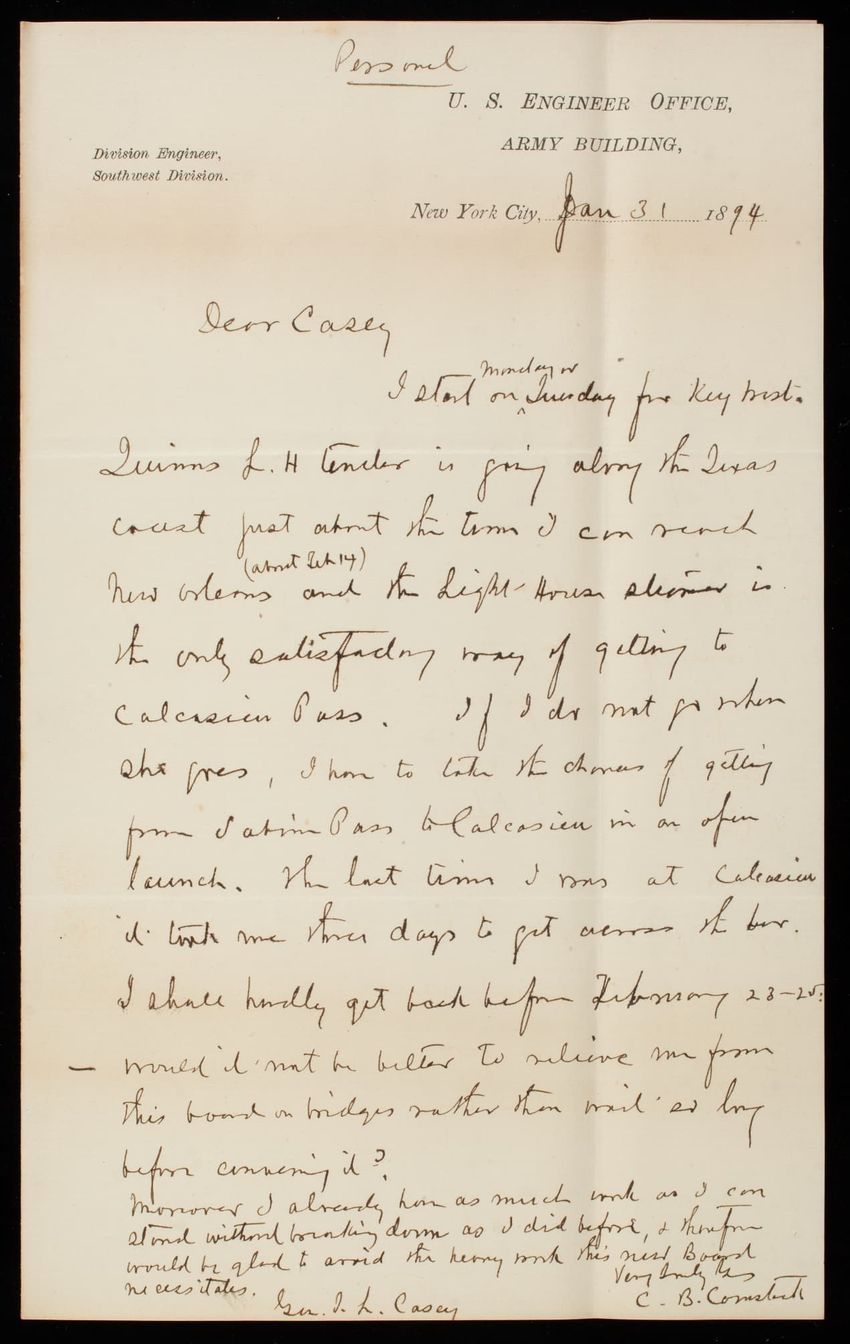 Personal
U. S. ENGINEER OFFICE,
ARMY BUILDING,
Division Engineer,
Southwest Division.
New York City, Jan 31 1894
Dear Casey
I start on Monday or Tuesday for Key West.
Quinns L. H tender is going along the Texas
coast just about the time I can reach
New Orleans (about Feb 14) and the Light-House steamer is
the only satisfactory way of getting to
Calcasieu Pass. If I do not go when
she goes, I have to take the chances of getting
from Sabine Pass to Calcasieu in an open
launch. The last time I was at Calcasieu
it took me three days to get across the bar.
I shall hardly get back before February 23-25.
— would it not be better to relieve me from
this board on bridges rather than wait so long
before convening it?
Moreover I already have as much work as I can
stand without breaking down as I did before, & therefore
would be glad to avoid the heavy work this new Board
necessitates.
Very truly yrs
C. B. Comstock
Gen. T. L. Casey